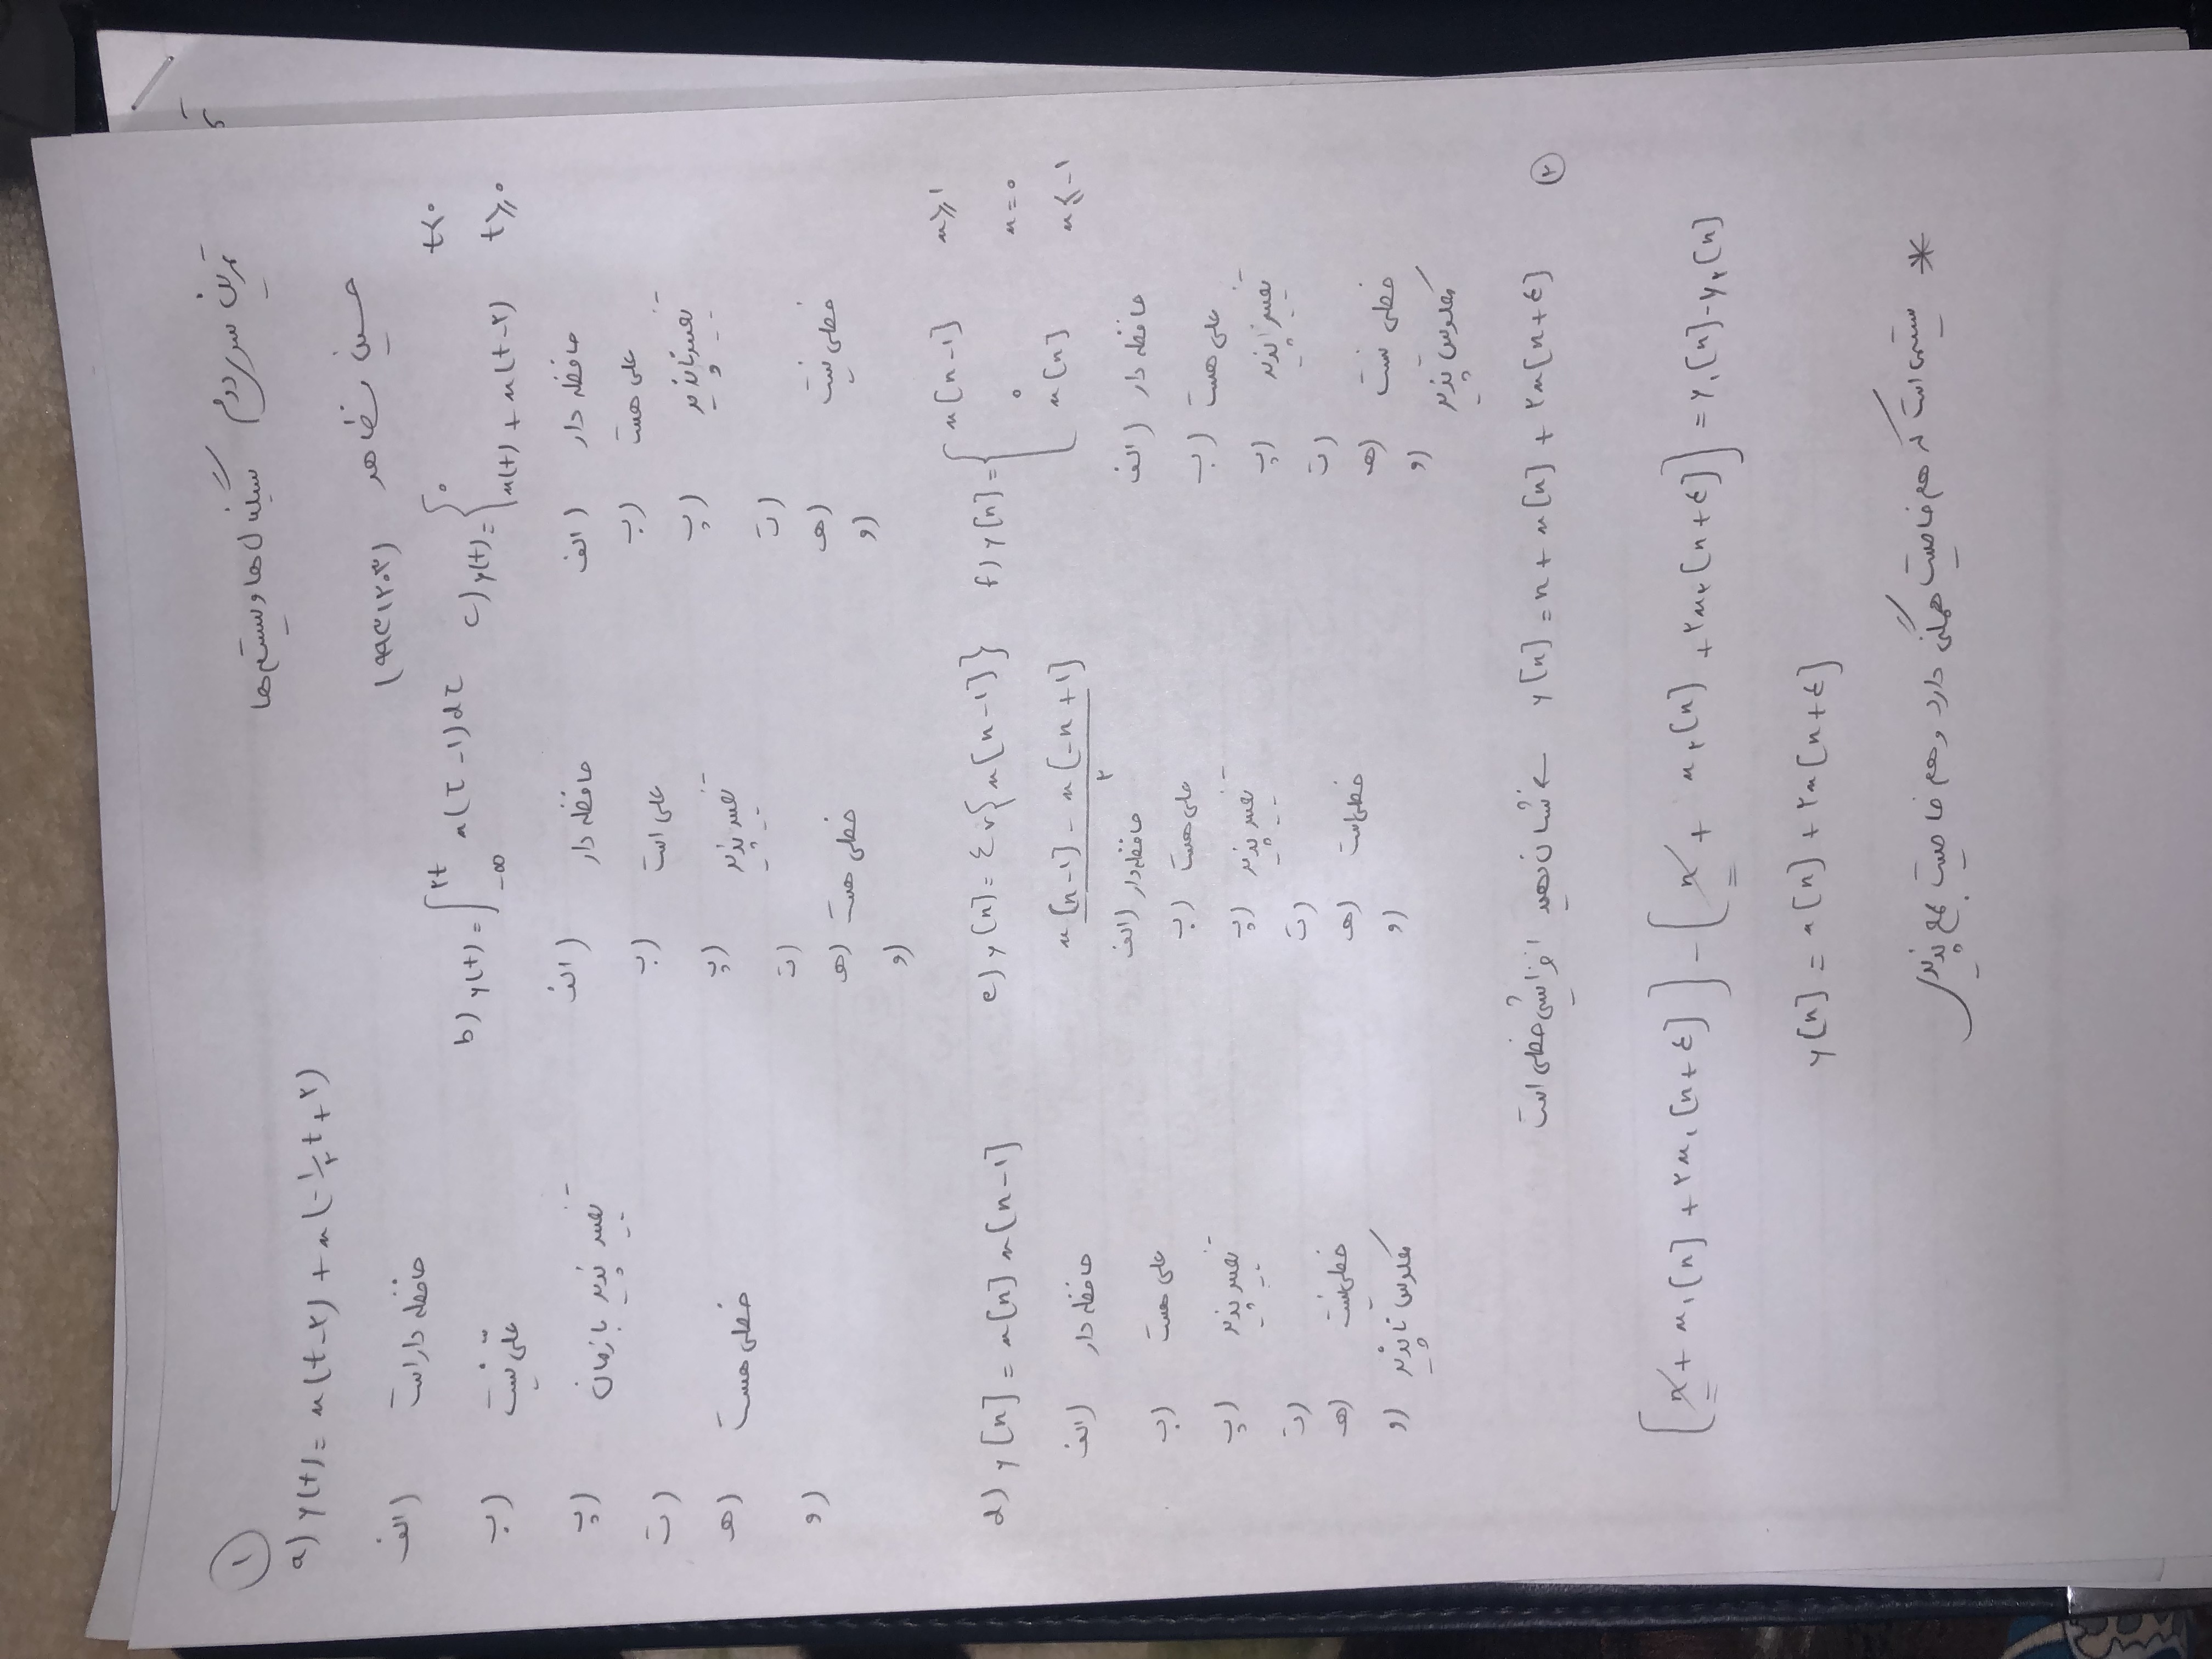 تمرین سری دوم سیگنال ها و سیستم ها
حسین مظاهر (۹۹۳۱۲۰۳)
۱
a) y(t) = x(t-۲) + x(-۱/۲ t + ۲)
الف) حافظه دار است
ب) علّی نیست
پ) تغییر پذیر با زمان
ت)
ه) خطی هست
و)
b) y(t) = ∫_{-∞}^{۲t} x(τ-۱)dτ
الف) حافظه دار
ب) علی است
پ) تغییر پذیر
ت)
ه) خطی هست
و)
c) y(t) = { ۰ t<۰
x(t) + x(t-۲) t⩾۰
الف) حافظه دار
ب) علی هست
پ) تغییر ناپذیر
ت)
ه) خطی نیست
و)
d) y[n] = x[n] x[n-۱]
الف) حافظه دار
ب) علی هست
پ) تغییر پذیر
ت)
ه) خطی نیست
و) معکوس ناپذیر
e) y[n] = Ev{x[n-۱]}
x[n-۱] - x[-n+۱] / ۲
الف) حافظه دار
ب) علی هست
پ) تغییر پذیر
ت)
ه) خطی است
و)
f) y[n] = { x[n-۱] n⩾۱
۰ n=۰
x[n] n⩽-۱
الف) حافظه دار
ب) علی هست
پ) تغییر ناپذیر
ت)
ه) خطی نیست
و) معکوس پذیر
۲ y[n] = n + x[n] + ۲x[n+٤] ← نشان دهید افزایشی خطی است
[n + x₁[n] + ۲x₁[n+٤]] - [n + x₂[n] + ۲x₂[n+٤]] = y₁[n] - y₂[n]
y[n] = x[n] + ۲x[n+٤]
* سیستمی است که هم خاصیت همگنی دارد و هم خاصیت جمع پذیری